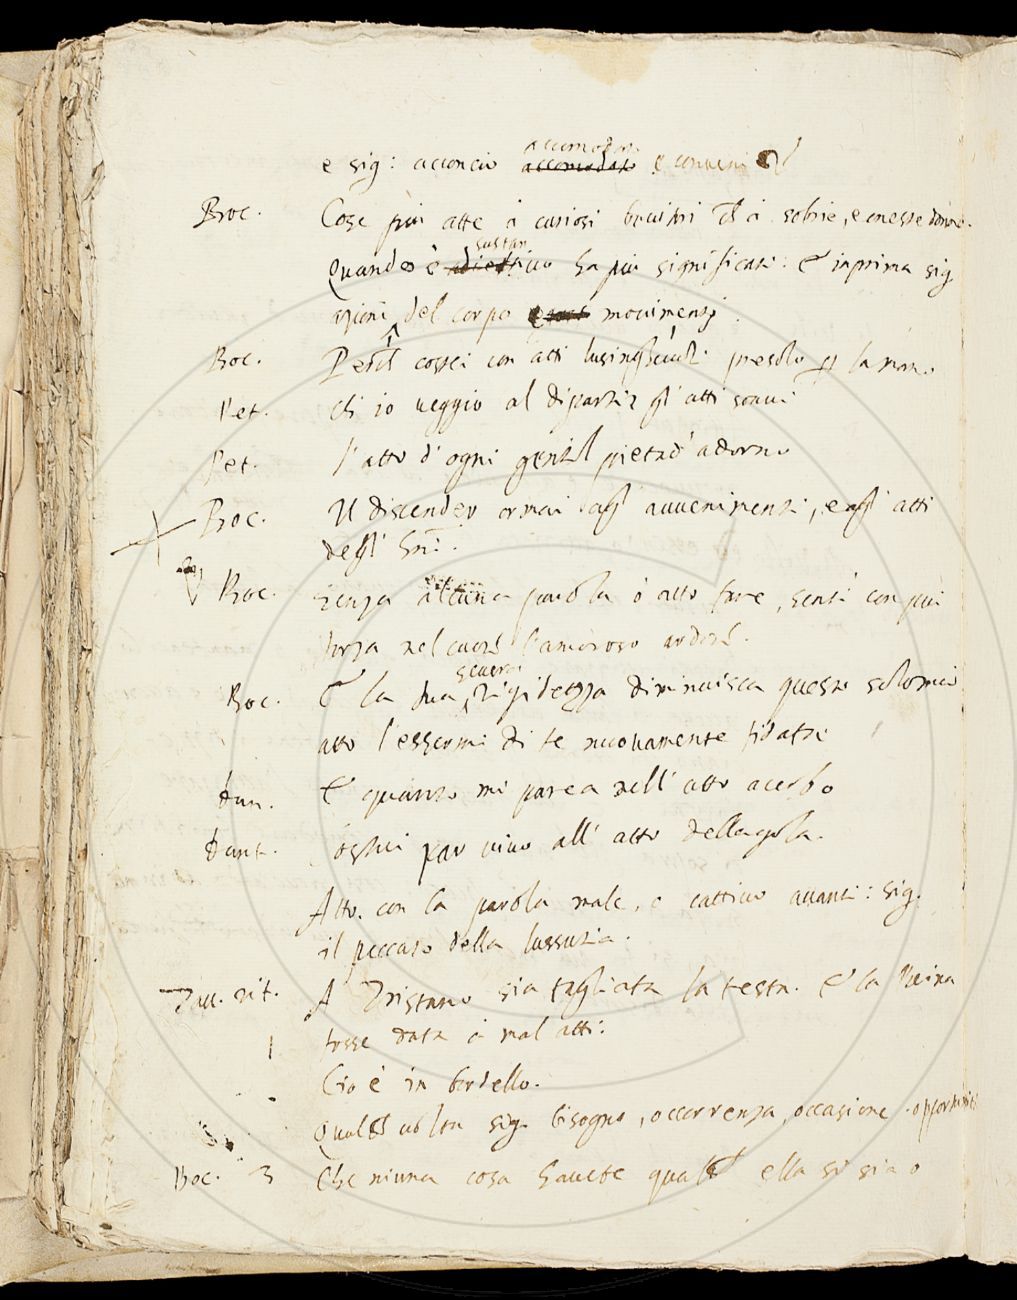 e sig: acconcio accomodato e conveni
Boc. Cose più atte à curiosi bevitri ch à sobrie, e oneste donne.
sustan
Quando è adiettivo ha più significati: E in prima sig
azioni del corpo movimenti.
Boc. costei con atti lusinghevoli presolo la man.
Pet. ch io veggio al dipartir gl' atti soavi
Pet. l' atto d' ogni gentil pietad' adorno
Boc. discender ormai agl' avvenimenti, e agl' atti
degl'
Boc. senza alcuna parola ò atto fare, sentì con più
forza nel cuore l' amoroso ardore.
severa
Boc. E la sua rigidezza diminuisca questo solo mio
atto l' essermi di te nuovamente fidata
Dan. E quanto mi parea nell' atto acerbo
Dant. costui par vivo all' atto della gola.
Atto. con la parola male, o cattivo avanti: sig.
il peccato della lussuria.
Tav. rit. A Tristano sia tagliata la testa. E la Reina
fosse data à mal atti:
Cio è in bordello.
volta sig. bisogno, occorrenza, occasione.
Boc. 3 Che niuna cosa havete qual ella si sia o